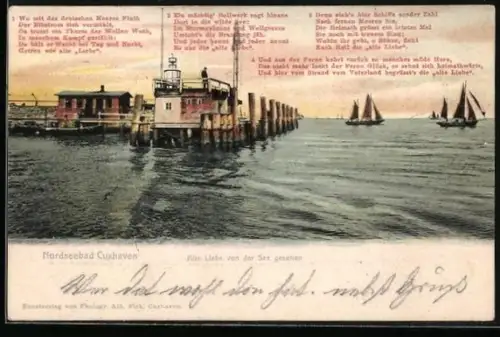 1 Wo mit des deutschen Meeres Fluth
Der Elbstrom sich vermählt,
Da trotzt ein Thurm der Wellen Wuth,
In manchem Kampf gestählt;
Da hält er Wacht bei Tag und Nacht,
Getreu der alte „Liebe“.
2 Ein mächtig Bollwerk ragt hinaus
Dort in die wilde See;
Ob Sturmgebraus und Wellgraus
Umtobt's die Brandung jäh,
Und jeder kennt und jeder nennt
Es nur die „alte Liebe“.
3 Dran zieh'n hier Schiffe sonder Zahl
Nach fernen Meeren hin,
Der Heimath grüsst ein letztes Mal
Sie noch mit treuem Sinn;
Wohin ihr geht, o Söhne, Zahl
Euch Heil die „alte Liebe“.
4 Und aus der Ferne kehrt zurück so manches müde Herz,
Das nicht mehr lockt der Ferne Glück, es sehnt sich heimathwärts,
Und hier vom Strand vom Vaterland begrüsst's die „alte Liebe“.
Nordseebad Cuxhaven
Alte Liebe von der See gesehen
Wer dat wohl don hat. nebst Gruß
Kunstverlag von Photogr. Alb. Cuxhaven.